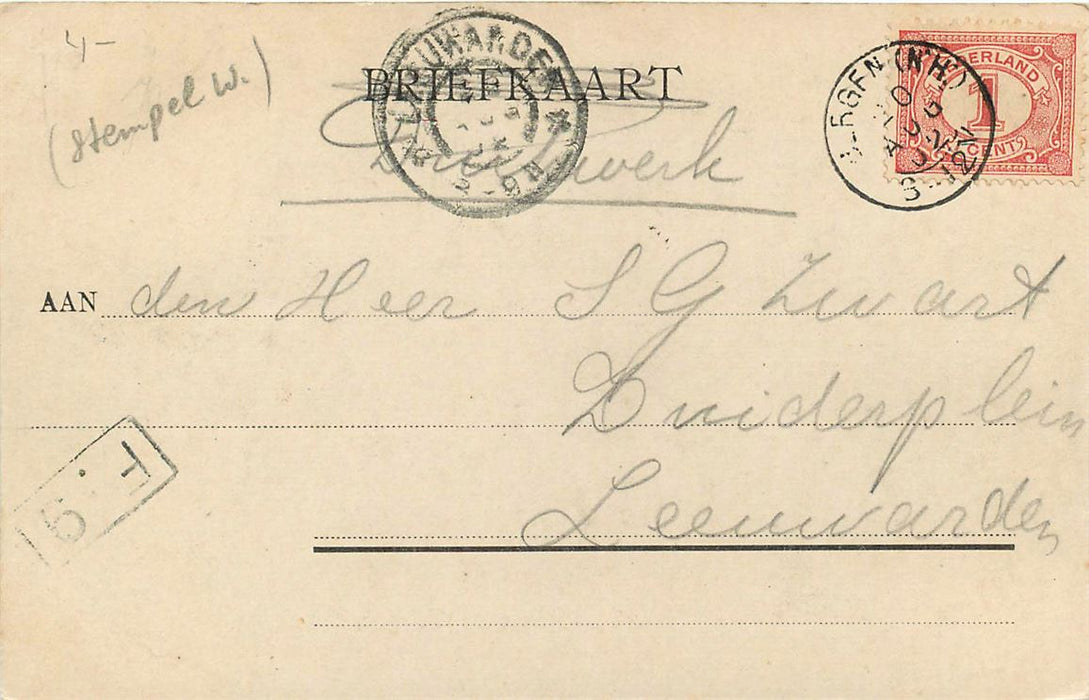 4-
(stempel W.)
BRIEFKAART
Drukwerk
LEEUWARDEN
8-9N
BERGEN (N.H.)
8-12V
NEDERLAND
1
CENT
AAN den Heer S G Zwart
Zuiderplein
Leeuwarden
F. 5